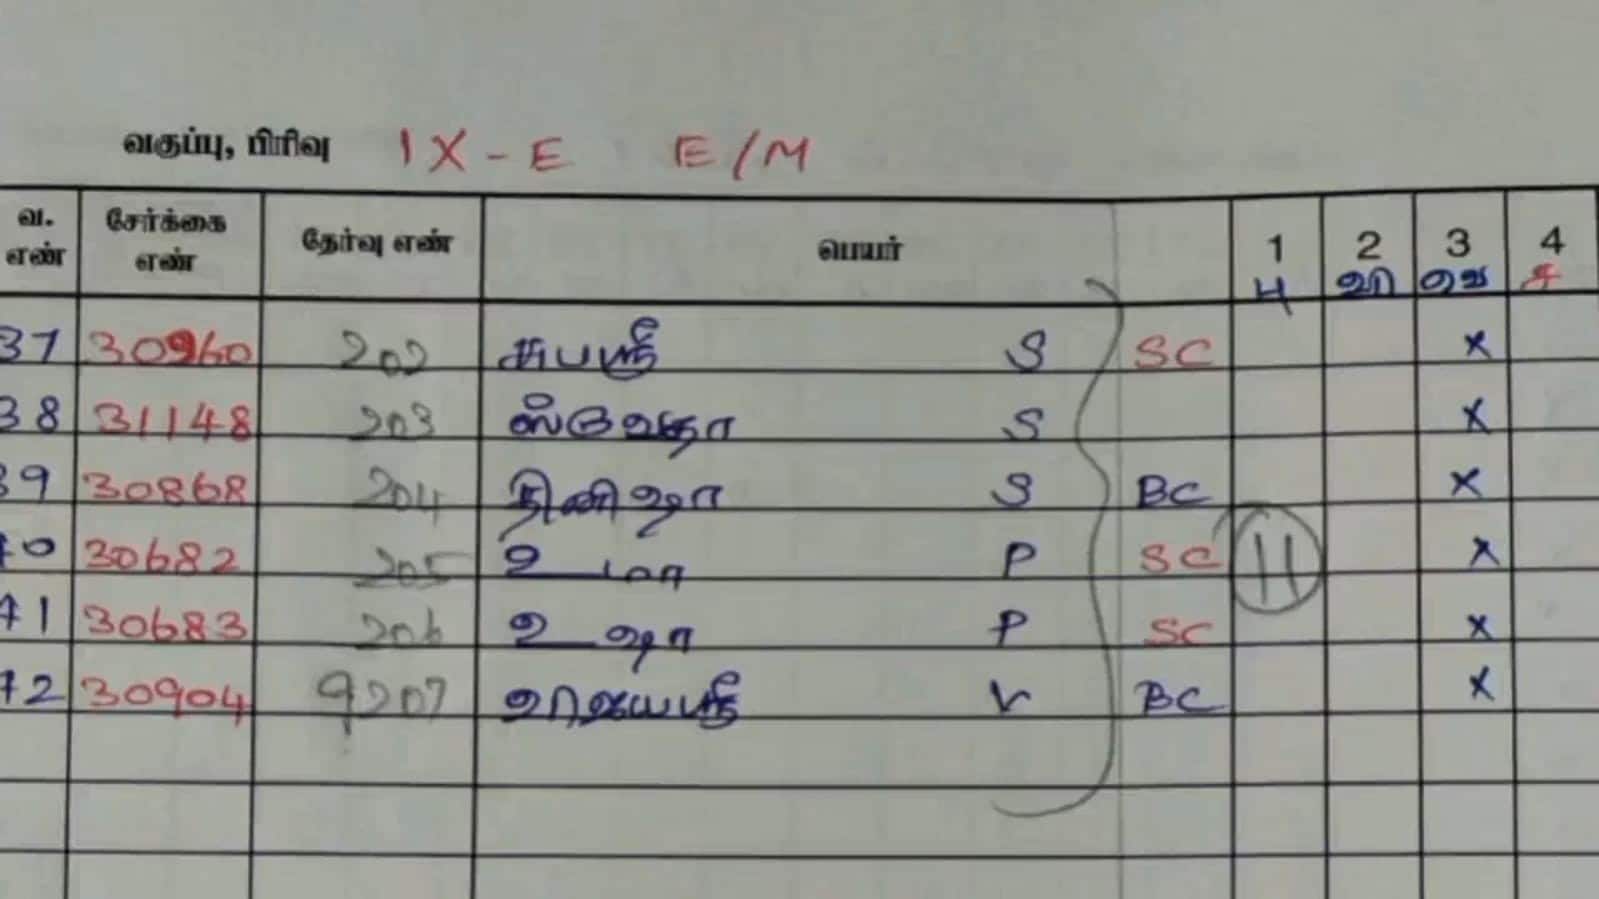 வகுப்பு, பிரிவு IX-E E/M
வ. எண் சேர்க்கை எண் தேர்வு எண் பெயர் 1 2 3 4
37 30960 202 சுபஸ்ரீ S SC x
38 31148 203 S x
39 30868 204 S BC x
40 30682 205 உமா P SC 11 x
41 30683 206 உஷா P SC x
42 30904 207 V BC x